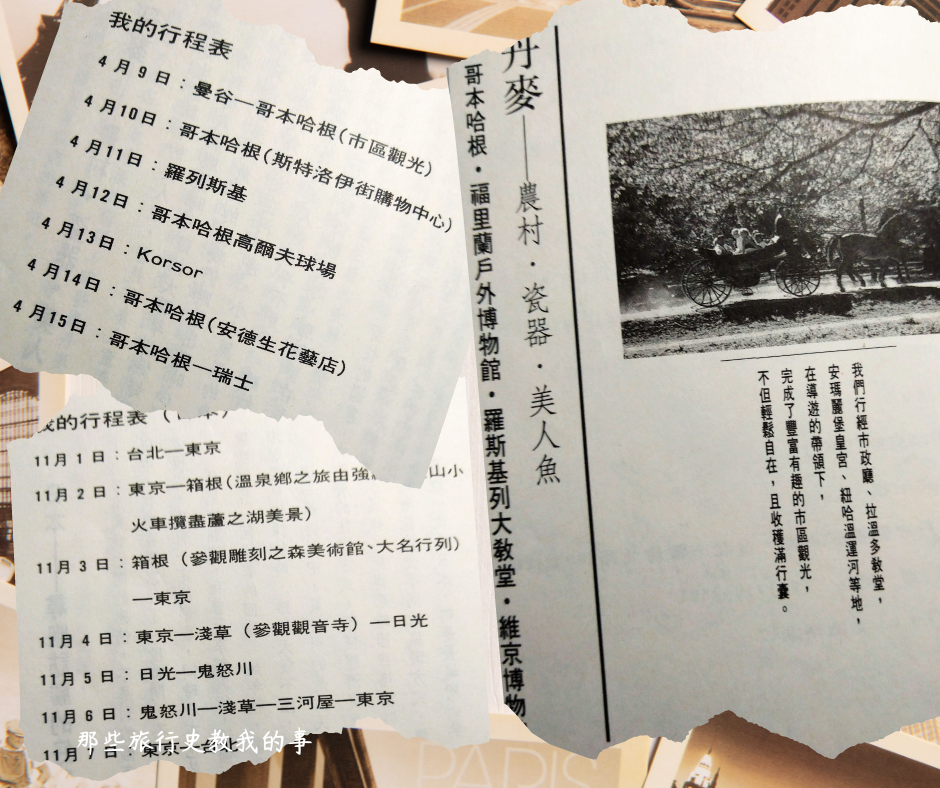 我的行程表
4月9日：曼谷—哥本哈根（市區觀光）
4月10日：哥本哈根（斯特洛伊街購物中心）
4月11日：羅列斯基
4月12日：哥本哈根高爾夫球場
4月13日：Korsor
4月14日：哥本哈根（安德生花藝店）
4月15日：哥本哈根—瑞士
我的行程表
11月1日：台北—東京
11月2日：東京—箱根（溫泉鄉之旅由強 山小
火車攬盡蘆之湖美景）
11月3日：箱根（參觀雕刻之森美術館、大名行列）
—東京
11月4日：東京—淺草（參觀觀音寺）—日光
11月5日：日光—鬼怒川
11月6日：鬼怒川—淺草—三河屋—東京
11月7日：東京—台北
那些旅行史教我的事
丹麥——農村．瓷器．美人魚
哥本哈根．福里蘭戶外博物館．羅斯基列大教堂．維京博物
我們行經市政廳、拉溫多教堂，
安瑪麗堡皇宮、紐哈溫運河等地，
在導遊的帶領下，
完成了豐富有趣的市區觀光，
不但輕鬆自在，且收穫滿行囊。
PARIS